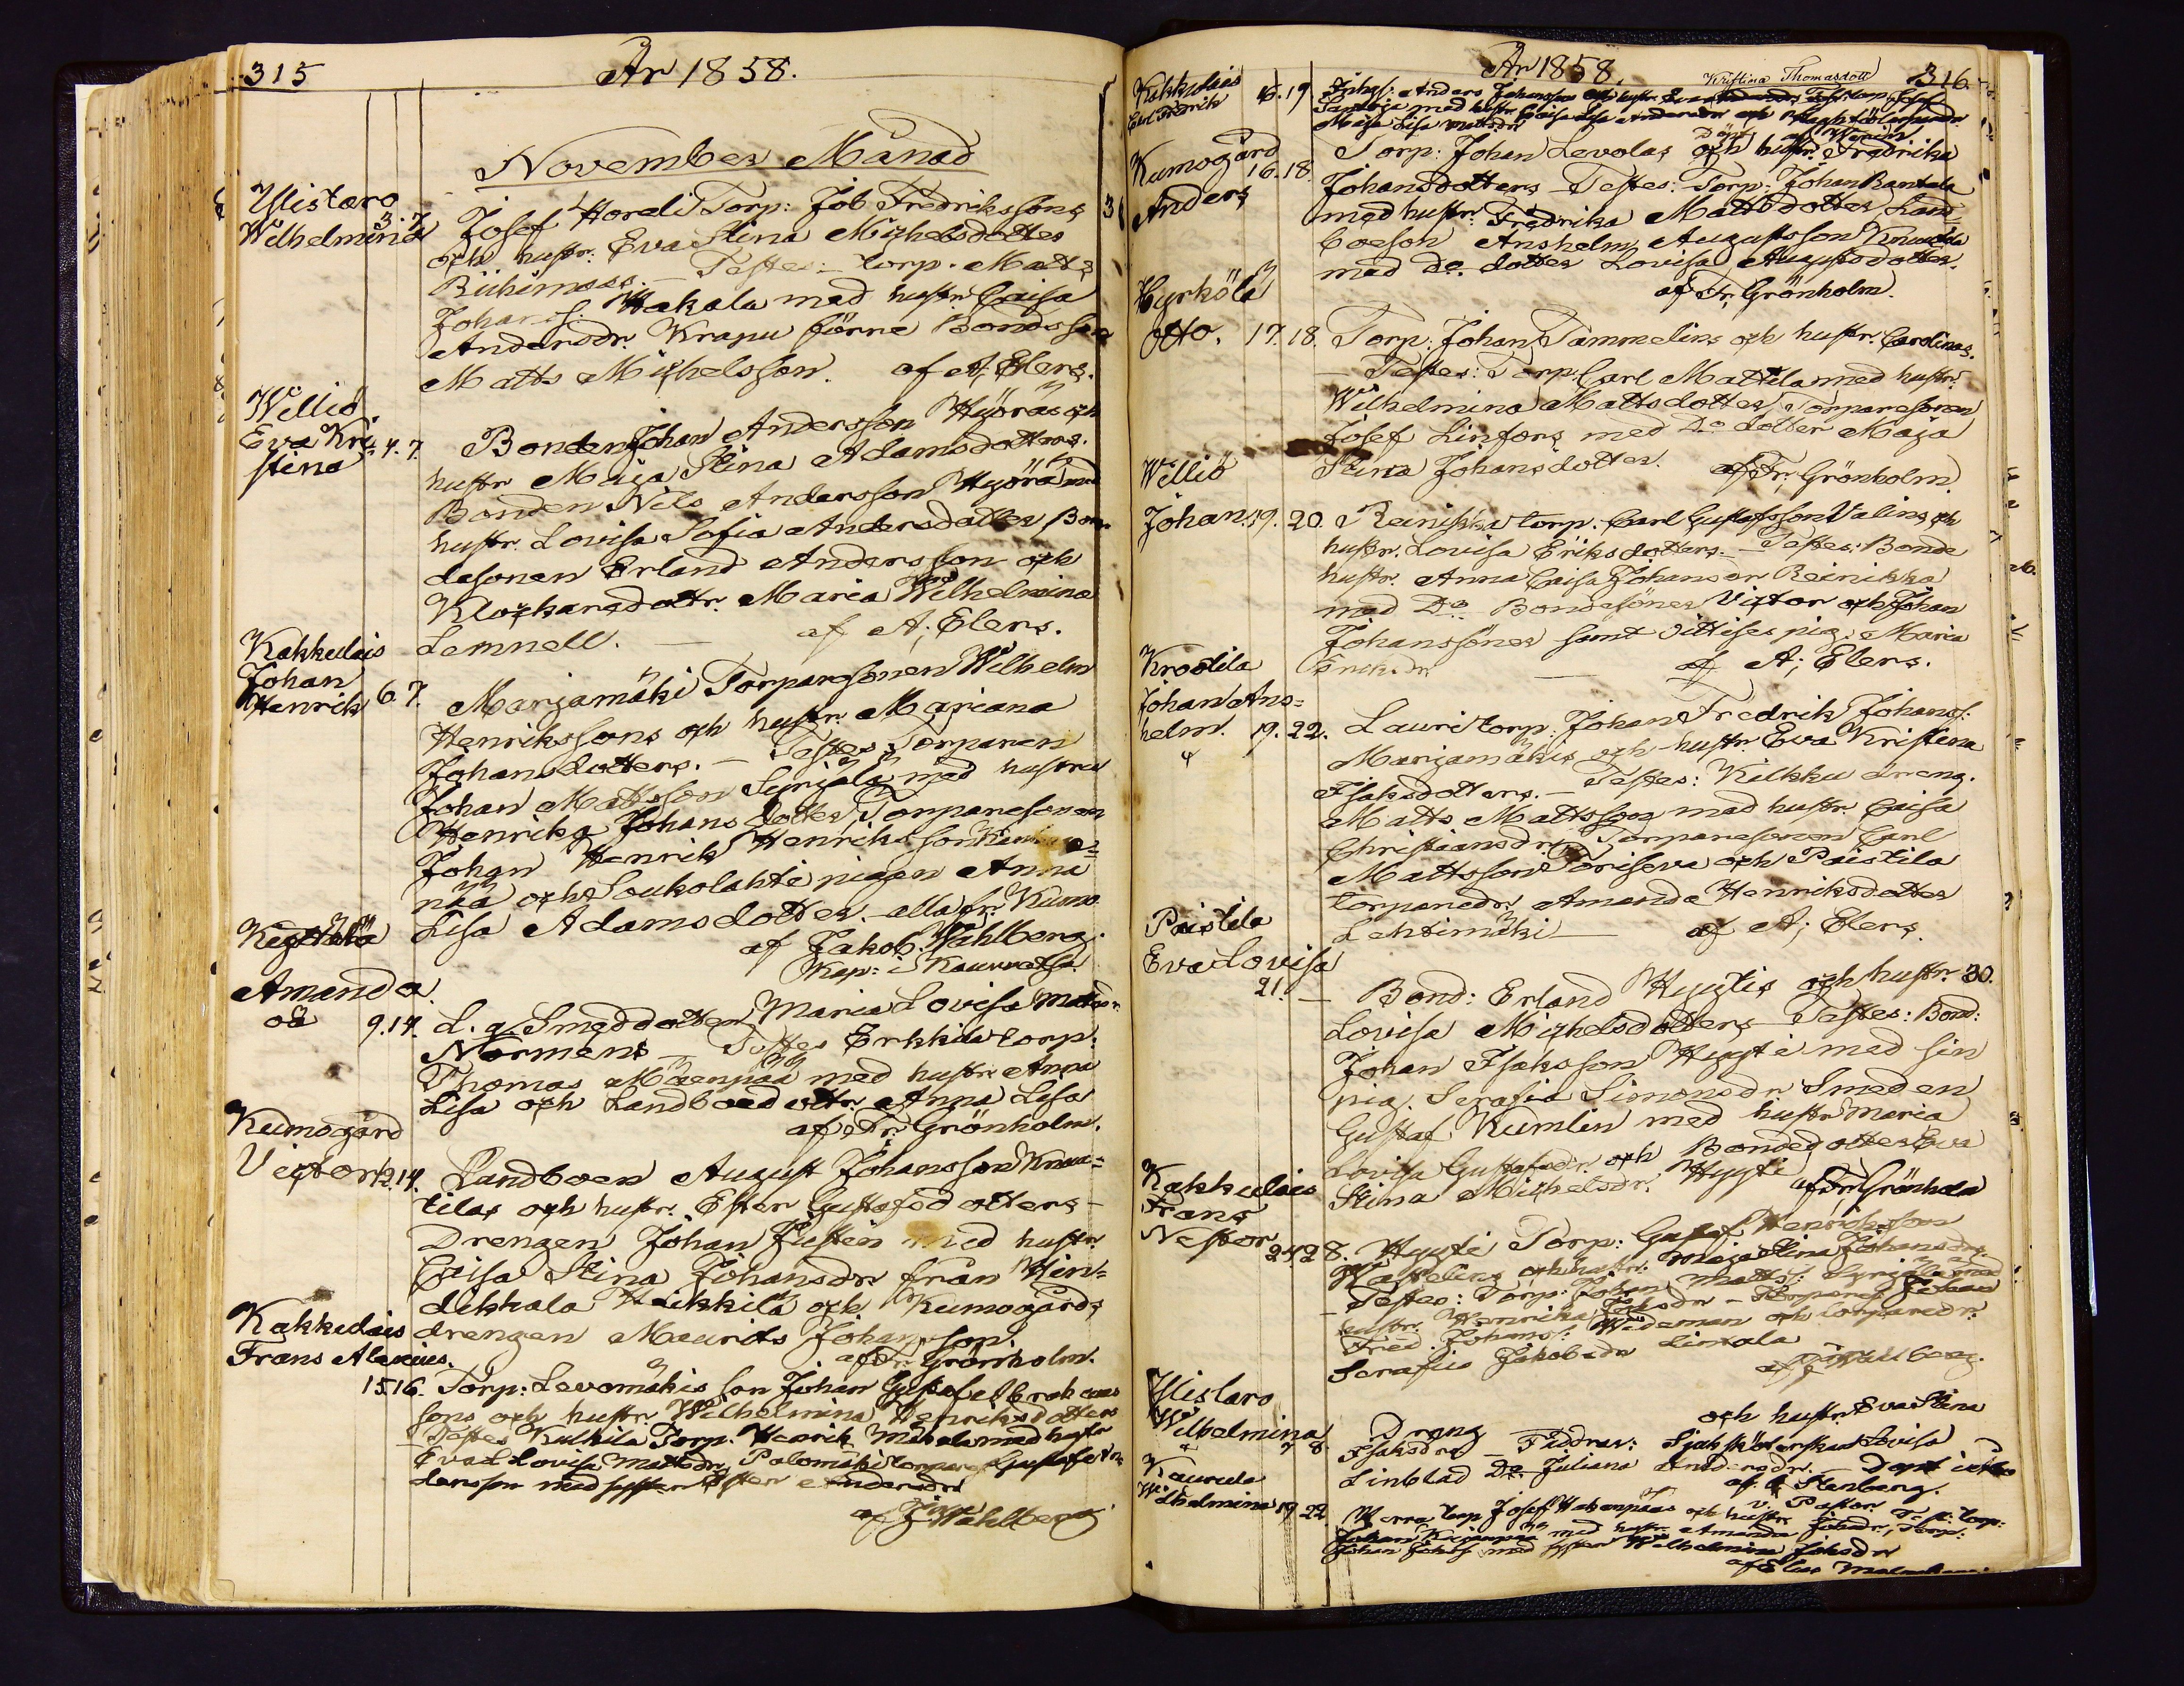 315
År 1858.
November Månad
Ylistaro
Wilhelmina 3. 7.
Josef Hordi Torp: Job Fredrikssons
och hustr: Eva Stina Michelsdotters
Testes: torp. Matts
Johans. Hakala med hustr Caisa
Andersdr. Krapu förre Bondsson
Matts Michelsson. af A; Elers.
Williö
Eva Kri-
stina 4. 7.
Bonden Johan Andersson Hyöräs och
hustr Maija Stina Adamsdotters.
Bonden Nils Andersson Hyörä med
hustr. Lovisa Sofia Andersdotter Bon-
desonen Erland Andersson och
Klockaredottr. Maria Wilhelmina
Lemnell. — af A; Elers.
Kakkulais
Johan
Henrik 6. 7.
Marjamäki Torparesonen Wilhelm
Henrikssons och hustr. Mariana
Johansdotters. — Testes Torparen
Johan Mattsson Syrjälä med hustru
Henrika Johansdotter, Torparesonen
Johan Henrik Henriksson
och Soukolahti pigan Anna
Lisa Adamsdotter. alla fr. Kumo
af Jakob Wahlberg.
Kap: i Kauvatsa
Amanda
oä 9. 14.
L. q. Smeddotter Maria Lovisa Mattsdr
Normens — Testes Erkkila torp:
Thomas Mäenpää med hustr Anna
Lisa och Landboedottr. Anna Lisa
af Fr. Grönholm.
Kumogård
Victor 12. 14.
Landboen August Johansson Knuu-
tilas och hustr. Ester Gustafsdotters —
Drengen Johan Justen med hustr
Caisa Stina Johansdr från Hin-
dikkala Heikkilä och Kumogårds
drengen Maurits Johansson.
af Fr. Grönholm.
Kakkulais
Frans Alexius.
15. 16. Torp: Levomäkis son Johan Gustaf Abrahams
sons och hustr. Wilhelmina Henriksdotters
— Testes Kulkila Torp. Henrik Mikola med hustr
Eva Lovisa Mattsdr, Palomäki torpares Gustaf An-
dersson med syster Ester Andersdr
af J. Wahlberg.
År 1858.
316.
Kristina Thomasdott
Kakkulais
Carl Fredrik 16. 19
Inhys: Anders Johansson och hustr.
Kumogård
Anders 16. 18.
Torp: Johan Levolas och hustr. Fredrika
Johansdotters — Testes: Torp: Johan Rantala
med hustr: Fredrika Mattsdotter, Land
boeson Anshelm Augustsson Knuutila
med Do. dotter Lovisa Augustsdotter.
af Fr. Grönholm.
Hyrkölä
Otto. 17. 18. Torp: Johan Tammelins och hustr. Carolinas.
— Testes: Torp: Carl Mattila med hustr:
Wilhelmina Mattsdotter, Torparesonen
Josef Linfors med Do dotter Maja
Stina Johansdotter. af Fr; Grönholm.
Williö
Johan. 19. 20. Reinikka torp. Carl Gustafsson Valins och
hustr. Lovisa Eriksdotters. — Testes: Bonde
hustr. Anna Caisa Johansdr Reinikka
med Do Bondesöner Victor och Johan
Johanssöner samt Vittises pig: Maria
Erik.dr. — af A; Elers.
Krootila
Johan Ans-
helm. 19. 22. Lauri torp: Johan Fredrik Johans:
Marjamäkis och hustr. Eva Kristina
Isaksdotters. — Testes: Kilkku dreng.
Matts Mattsson med hustr. Caisa
Christiansdr. Torparesonen Carl
Mattsson Toriseva och Paistila
torparedr. Amanda Henriksdotter
Lehtimäki — af A; Elers.
Paistila
Eva Lovisa
21. — Bond: Erland Hyytis och hustr. 30.
Lovisa Michelsdotters — Testes: Bond:
Johan Isaksson Hyyti med sin
pig. Serafia Simonsdr. Smeden
Gustaf Kumlin med hustr Maria
Lovisa Gustafsdr. och Bondedotter Eva
Stina Michelsdr. Hyyti af Fr. Grönholm
Kakkulais
Frans
Nestor 24. 28. Hyyti Torp: Gustaf Henriksson
och hustr. Maja Stina Johansdrs
— Testes: Torp: Johan Matts: Syrjälä med
hustr. Henrika — Torpares Johan
Fred. Johans: Wideman och torparedr.
Serafia Jakobsdr Limtala
af J. Wahlberg.
Ylistaro
Wilhelmina
Dreng och hustr. Eva Stina
Isaksdrs — Faddrar: Sjuksköterskan Lovisa
Linblad Do. Juliana Andersdr. — Döpt
af Stenberg.
v. Pastor.
Kaurula
Wilhelmina 19. 22
torp Josef Hakenpääs och hustr
Johan med hustr Amanda Johdr, Torp.
Johan Johans: med syster Wilhelmina Johsdr
af Elers